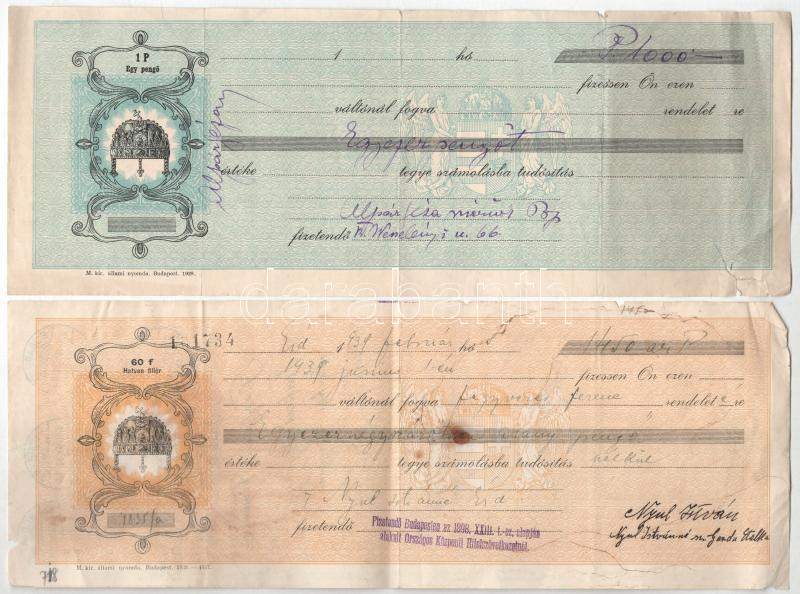 1 P
Egy pengő
1 hó P 1000
fizessen Ön ezen
váltónál fogva rendelet re
Egyezer pengőt
értéke tegye számolásba tudósítás
fizetendő u. 66
M. kir. állami nyomda. Budapest. 1928.
darabanth
1734
60 f
Hatvan fillér
Érd 1939 február hó 1450 P
1939 junius 1-én fizessen Ön ezen
váltónál fogva Fegyveres Ferenc rendelet e re
Egyezernégyszáz arany pengő
értéke tegye számolásba tudósítás nélkül
1835/a
Nyul Istvánné Érd
fizetendő
Fizetendő Budapesten az 1898. XXIII. t.-cz. alapján
alakult Országos Központi Hitelszövetkezetnél.
Nyul István
Nyul Istvánné
718
M. kir. állami nyomda. Budapest.